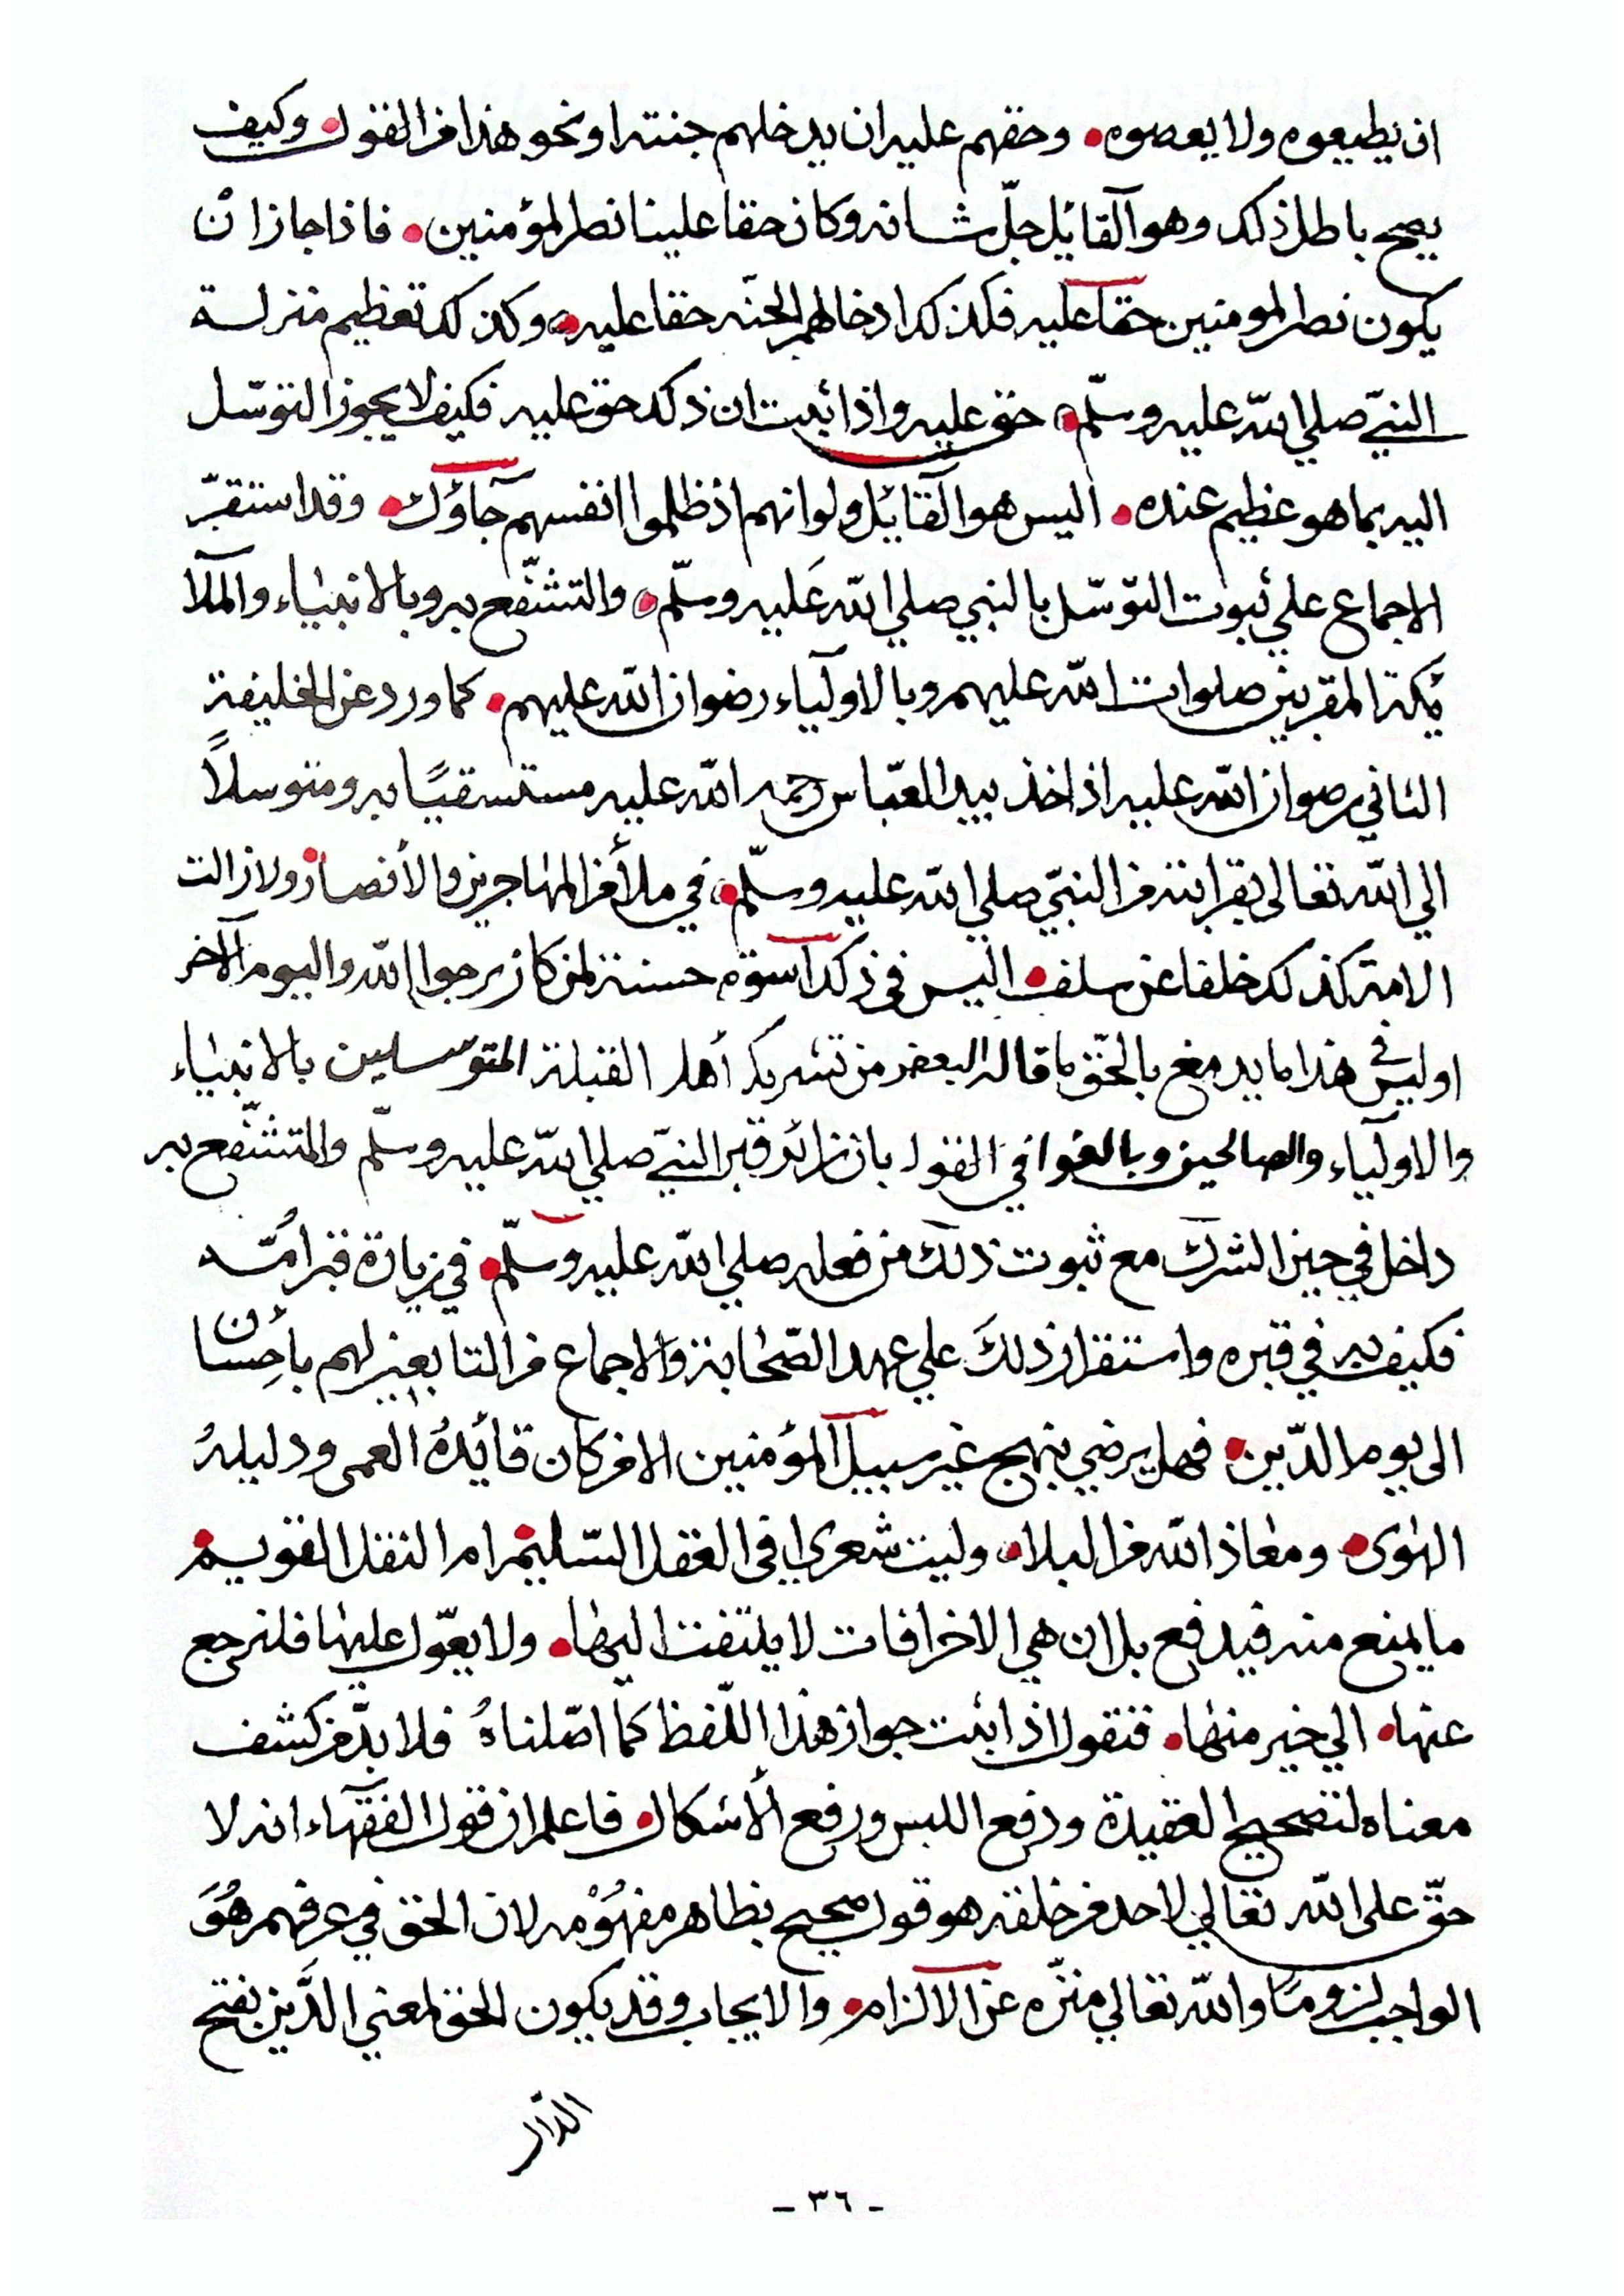 ان يطيعوه ولا يعصوه • وحقهم عليه ان يدخلهم جنته او نحو هذا من القول • وكيف
يصح باطل ذلك وهو القآئل جلّ شانه وكان حقا علينا نصر المؤمنين • فاذا جاز ان
يكون نصر المومنين حقا عليه فكذلك ادخالهم الجنّه حقا عليه • وكذلك تعظيم منزلة
النبيّ صلي الله عليه وسلّم • حق عليه واذا ثبت ان ذلك حق عليه فكيف لا يجوز التوسّل
اليه بما هو عظيم عنده • اليس هو القآئل ولو انهم اذ ظلموا انفسهم جآؤك • وقد استقرّ
الاجماع علي ثبوت التوسّل بالنبي صلي الله عَليه وسلّم • والتشفّع به وبالانبيٰاء والملآ
ئكة المقربين صلوات الله عليهم وبالاوليآء رضوان الله عليهم • كما ورد عن الخليفة
الثاني رضوان الله عليه اذ اخذ بيد العبّاس رحمه الله عليه مستسقيًا به ومتوسلاً
الي الله تعالى بقرابته من النبيّ صلي الله عليه وسلّم • في ملأ من المهٰاجرين والأنصار • ولا زالت
الامة كذلك خلفا عن سلف • اليس في ذلك اسوة حسنة لمن كان يرجوا الله واليوم الآخر
او ليس في هذا ما يدمغ بالحقّ ما قاله البعض من تشريك أهل القبلة المتوسلين بالانبيٰاء
والاوليآء والصالحين وبالغوا في القول بان زائر قبر النبيّ صلي الله عليه وسلّم والمتشفّع به
داخل في حيز الشرك مع ثبوت ذلك من فعله صلي الله عليه وسلّم • في زيارة قبر امُّه
فكيف به في قبره واستقرار ذلكَ علي عهد الصّحٰابة والاجماع من التابعين لهم بأحسان
الى يوم الدّين • فهل يرضي بنهج غير سبيل المؤمنين الا من كان قآئدهُ العمى ودليلهُ
الهٰوى • ومعٰاذ الله من البلاء • وليت شعري افي العقل السّليم • ام النقل القويم •
ما يمنع منه فيدفع بل ان هي الا خرافات لا يلتفت اليهٰا • ولا يعّول عليهٰا فلنرجع
عنها • الي خير منهٰا • فنقول اذا ثبت جواز هٰذا اللّفظ كما اصّلناهُ فلا بدّ من كشف
معناه لتصحيح العقيدة ودفع اللبس ورفع الأشكال • فاعلم ان قول الفقهآء انه لا
حقّ على الله تعالي لاحد من خلقه هو قول صحيح بظاهر مفهُوْمه لان الحق في عرفهم هُوَ
الواجب لزومًا والله تعالي منزّه عن الالزام • والايجاب وقد يكون الحق لمعني الدَّين بفتح
الدال
- ٣٦ -